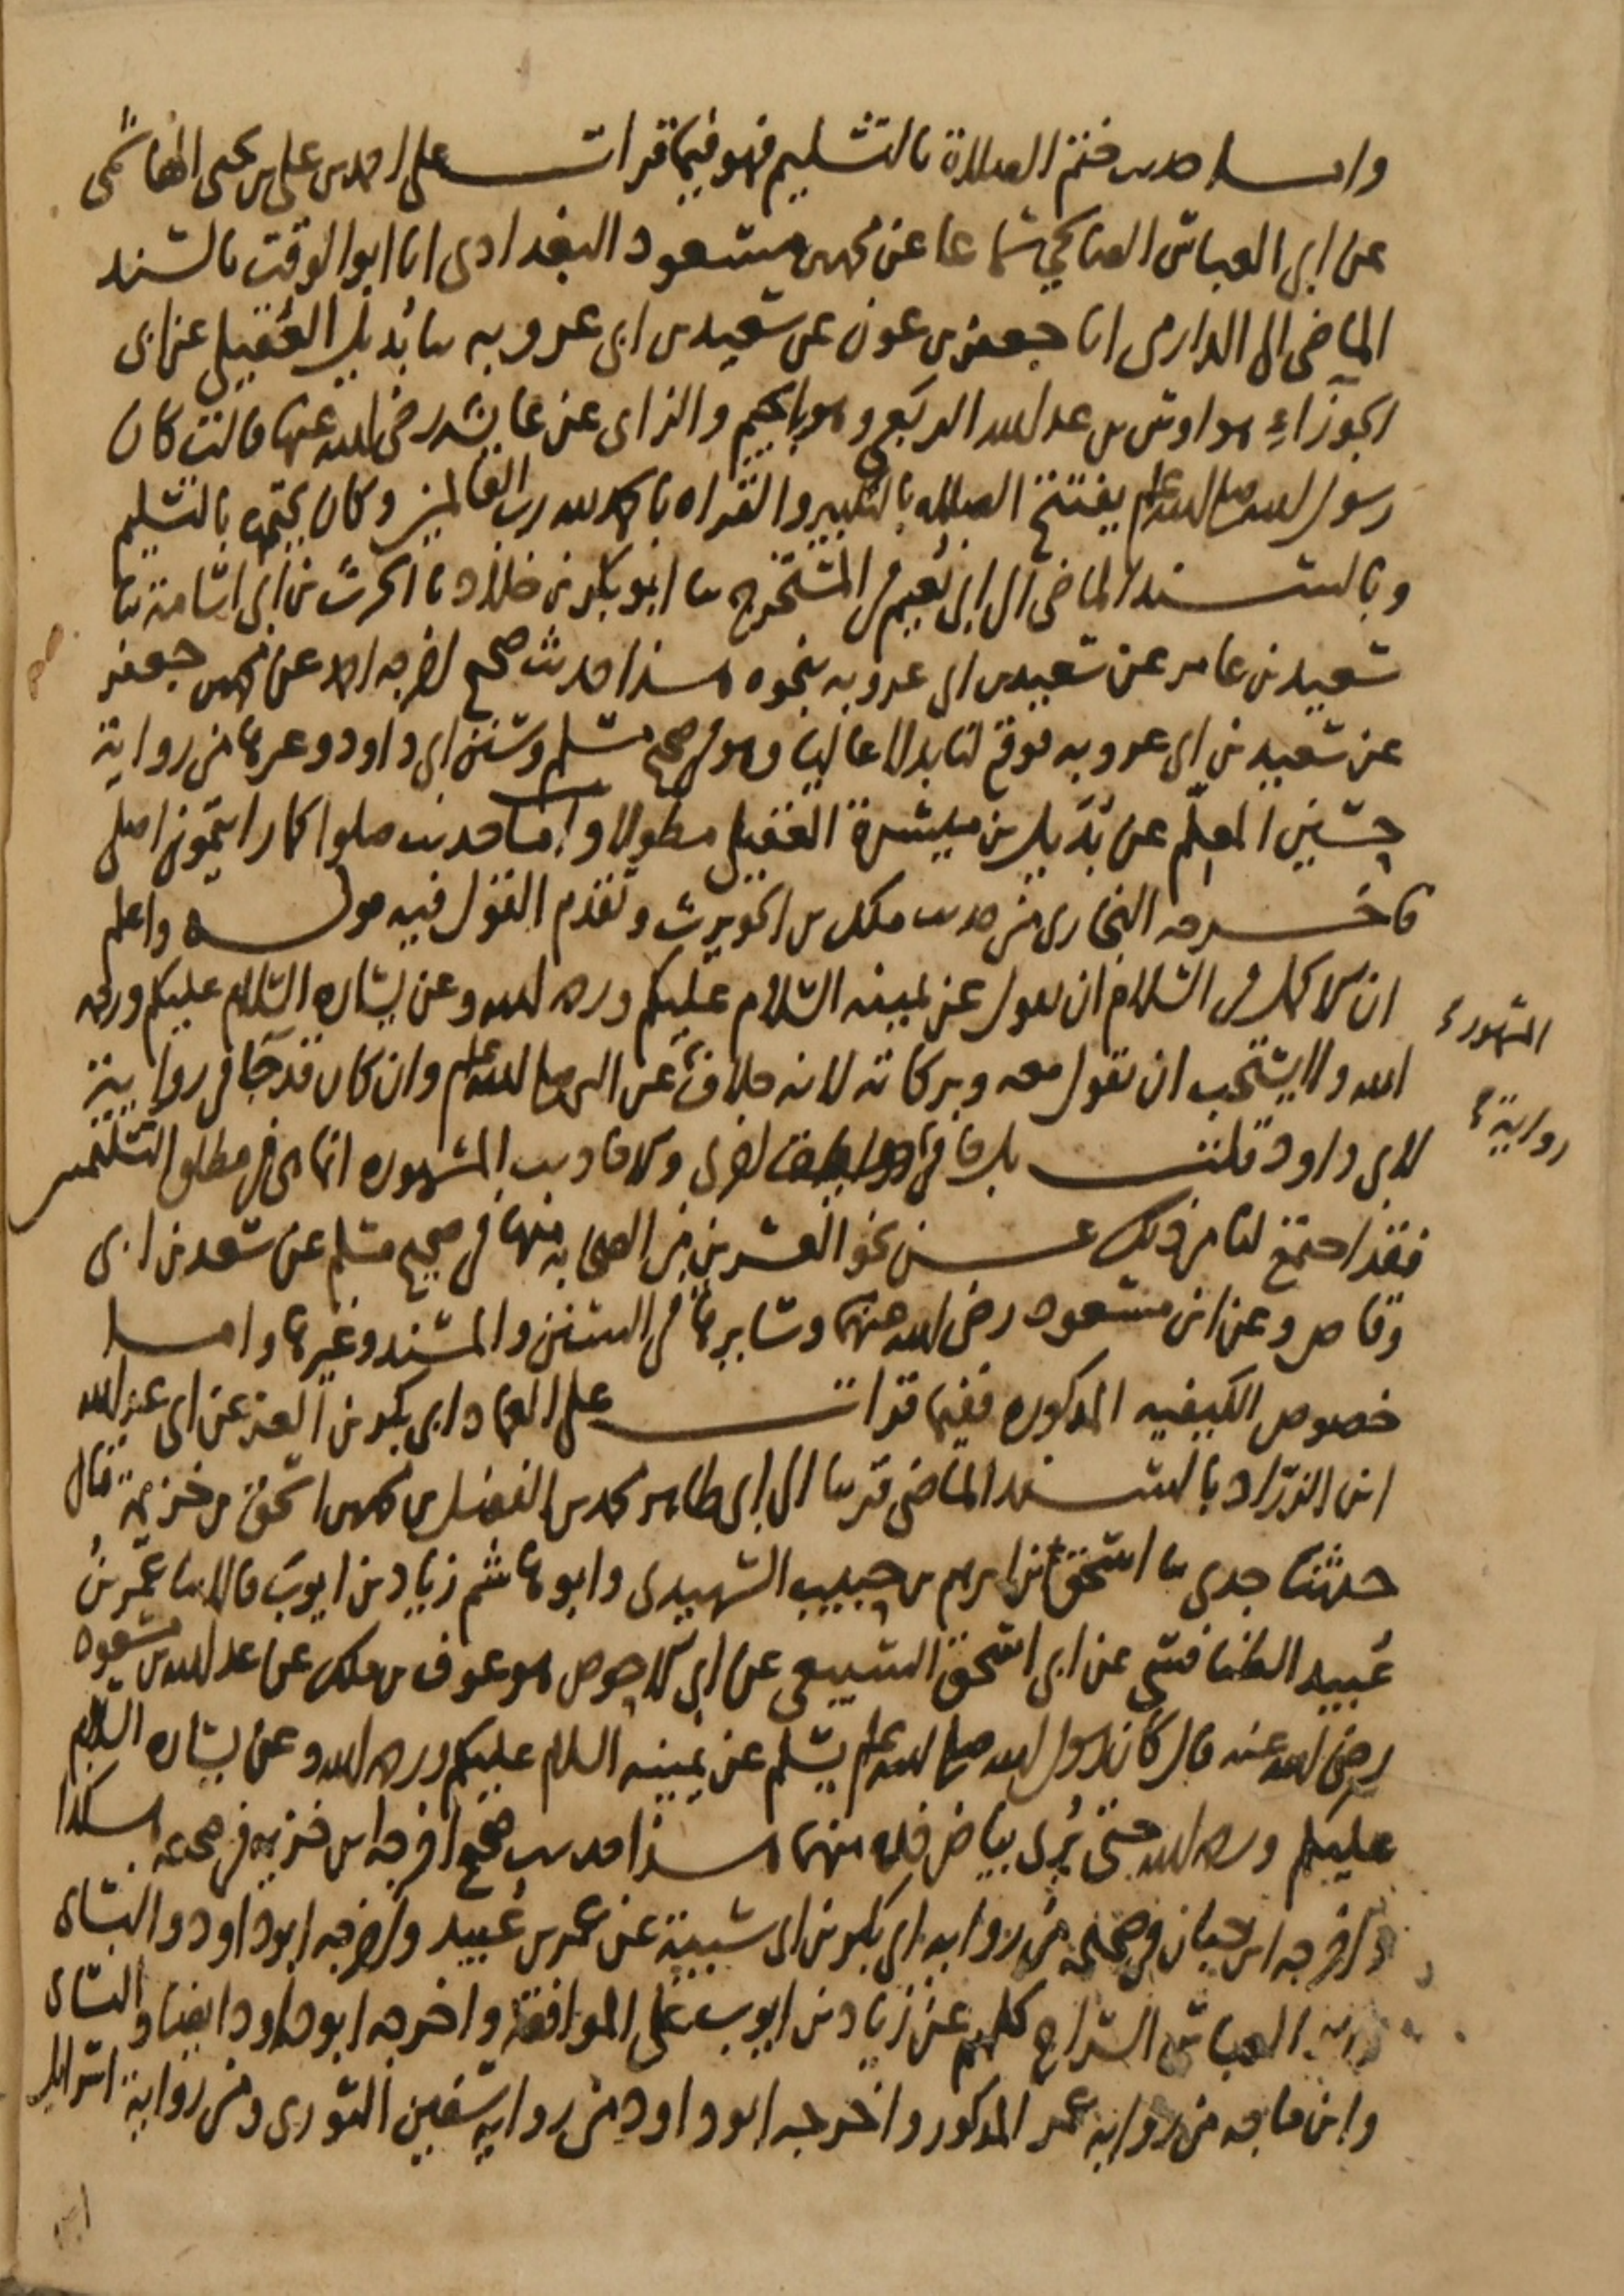 واما حديث ختم الصلاة بالتسليم فهو فيما قرات على احمد بن علي بن يحيى الهاشمي
عن ابي العباس الصالحي سماعا عن محمد بن مسعود البغدادي انا ابو الوقت بالسند
الماضي الى الدارمي انا جعفر بن عون عن سعيد بن ابي عروبه ثنا بُديل العُقيلي عن ابي
الجوزاءِ هو اوس بن عبد الله الربعي وهو بالجيم والزاي عن عايشه رضي الله عنها قالت كان
رسول الله صلى الله عليه وسلم يفتتح الصلاه بالتكبير والقراه بالحمد لله رب العالمين وكان يختمها بالتسليم
وبالسند الماضي الى ابي نُعيم في المستخرج ثنا ابو بكر بن خلاد ثنا الحرث بن ابي اسامة ثنا
سعيد بن عامر عن سعيد بن ابي عروبه بنحوه هذا حديث صحيح اخرجه احمد عن محمد بن جعفر
عن سعيد بن ابي عروبه فوقع لنا بدلا عاليا وهو في صحيح مسلم وسنن ابي داود وغيرها من رواية
حسين المعلّم عن بُديل بن ميسرة العقيلي مطولا واما حديث صلوا كما رايتموني اصلي
فاخرجه البخاري من حديث مالك بن الحويرث وتقدم القول فيه قوله واعلم
ان الاكمل في السلام ان يقول عن يمينه السلام عليكم ورحمه الله وعن يساره السلام عليكم ورحمه
الله ولا يستحب ان يقول معه وبركاته لانه خلاف عن النبي صلى الله عليه وسلم وان كان قد جا في رواية
المشهور
رواية
لابي داود قلت بل جا في اخرى والاحاديث المشهوره انما هي في مطلق التسليمتين
فقد اجتمع لنا من ذلك عن نحو العشرين من الصحابه منها في صحيح مسلم عن سعد بن ابي
وقاص وعن ابن مسعود رضي الله عنهما وسايرها في السنن والمسند وغيرها واما
خصوص الكيفيه المذكوره ففيما قرات على العماد ابي بكر بن العز عن ابي عبد الله
ابن الزرّاد بالسند الماضي قريبا الى ابي طاهر محمد بن الفضل بن محمد بن اسحق بن خزيمة قال
حدثنا جدي ثنا اسحق بن ابرهيم بن حبيب الشهيدي وابو هاشم زياد بن ايوب قالا ثنا عمر بن
عُبيد الطنافسي عن ابي اسحق السبيعي عن ابي الاحوص هو عوف بن ملك عن عبد الله بن مسعود
رضي الله عنه قال كان رسول الله صلى الله عليه وسلم يسلم عن يمينه السلام عليكم ورحمه الله وعن يساره السلام
عليكم ورحمه الله حتى يُرى بياض خده منهما هذا حديث صحيح اخرجه ابن خزيمه في صحيحه هكذا
واخرجه ابن حبان في صحيحه من روايه ابي بكر بن ابي شيبة عن عمر بن عُبيد واخرجه ابو داود والنساي
العباس السراج كلهم عن زياد بن ايوب على الموافقة واخرجه ابو داود ايضا والنساي
وابن ماجه من روايه عمر المذكور واخرجه ابو داود من روايه سفين الثوري ومن رواية اسرائيل